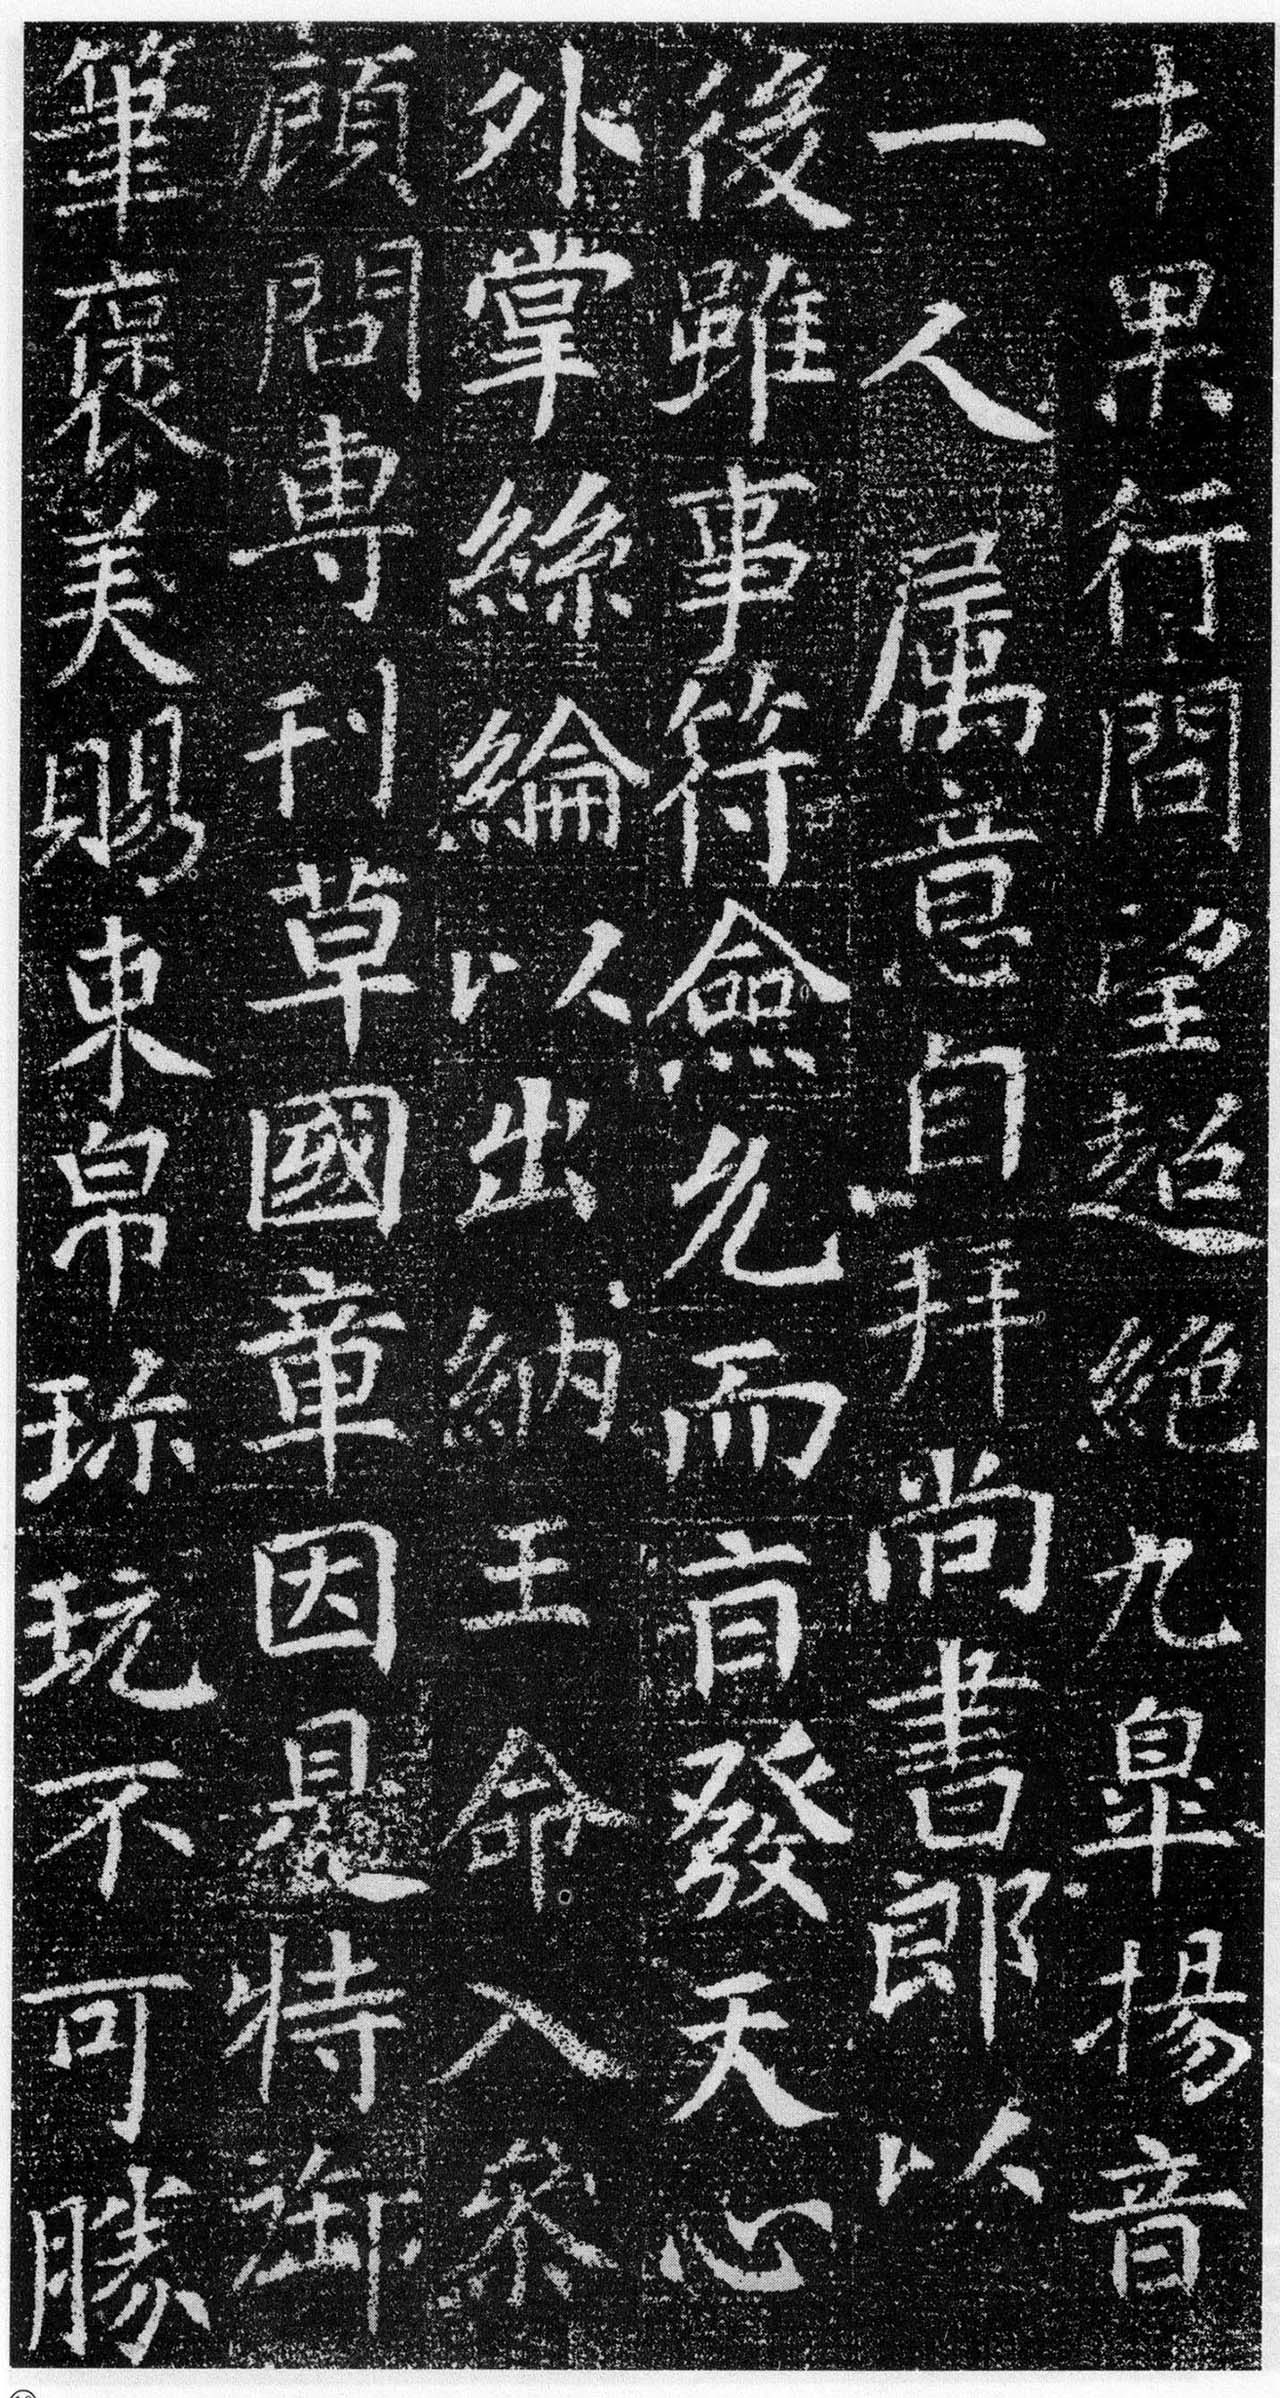 果行間望超絕九皐揚音
一人属意自拜尚書郎以
後雖事符僉允而旨發天心
外掌絲綸以出納王命入叅
顧問專刊草國章因是特御
筆褒美賜束帛珎玩不可勝